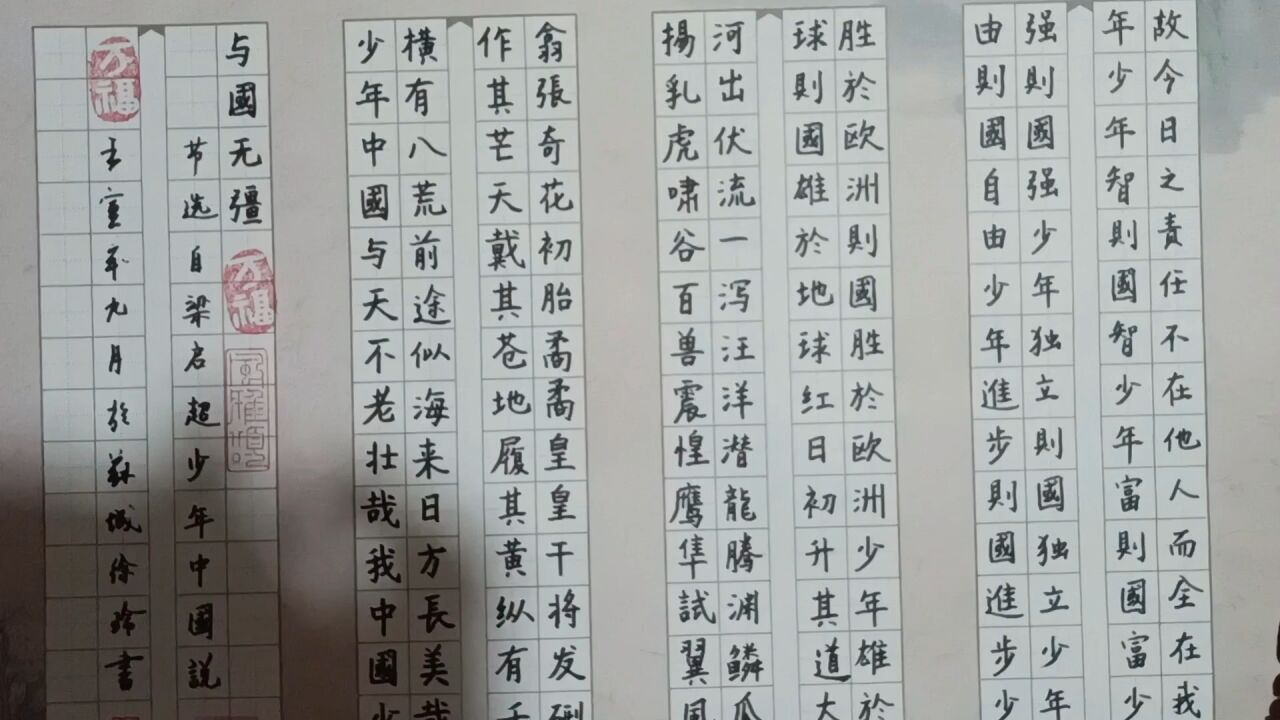 故今日之責任不在他人而全在我
年少年智則國智少年富則國富少
强則國强少年独立則國独立少年
由則國自由少年進步則國進步少
胜於欧洲則國胜於欧洲少年雄於
球則國雄於地球红日初升其道大
河出伏流一泻汪洋潜龍腾渊鳞爪
揚乳虎啸谷百兽震惶鹰隼試翼風
翕張奇花初胎矞矞皇皇干将发硎
作其芒天戴其苍地履其黄纵有千
横有八荒前途似海来日方長美哉
少年中國与天不老壮哉我中國少
与國无彊
万福
風雅頌
节选自梁启超少年中国説
万福
壬寅年九月於蘇城徐玲書